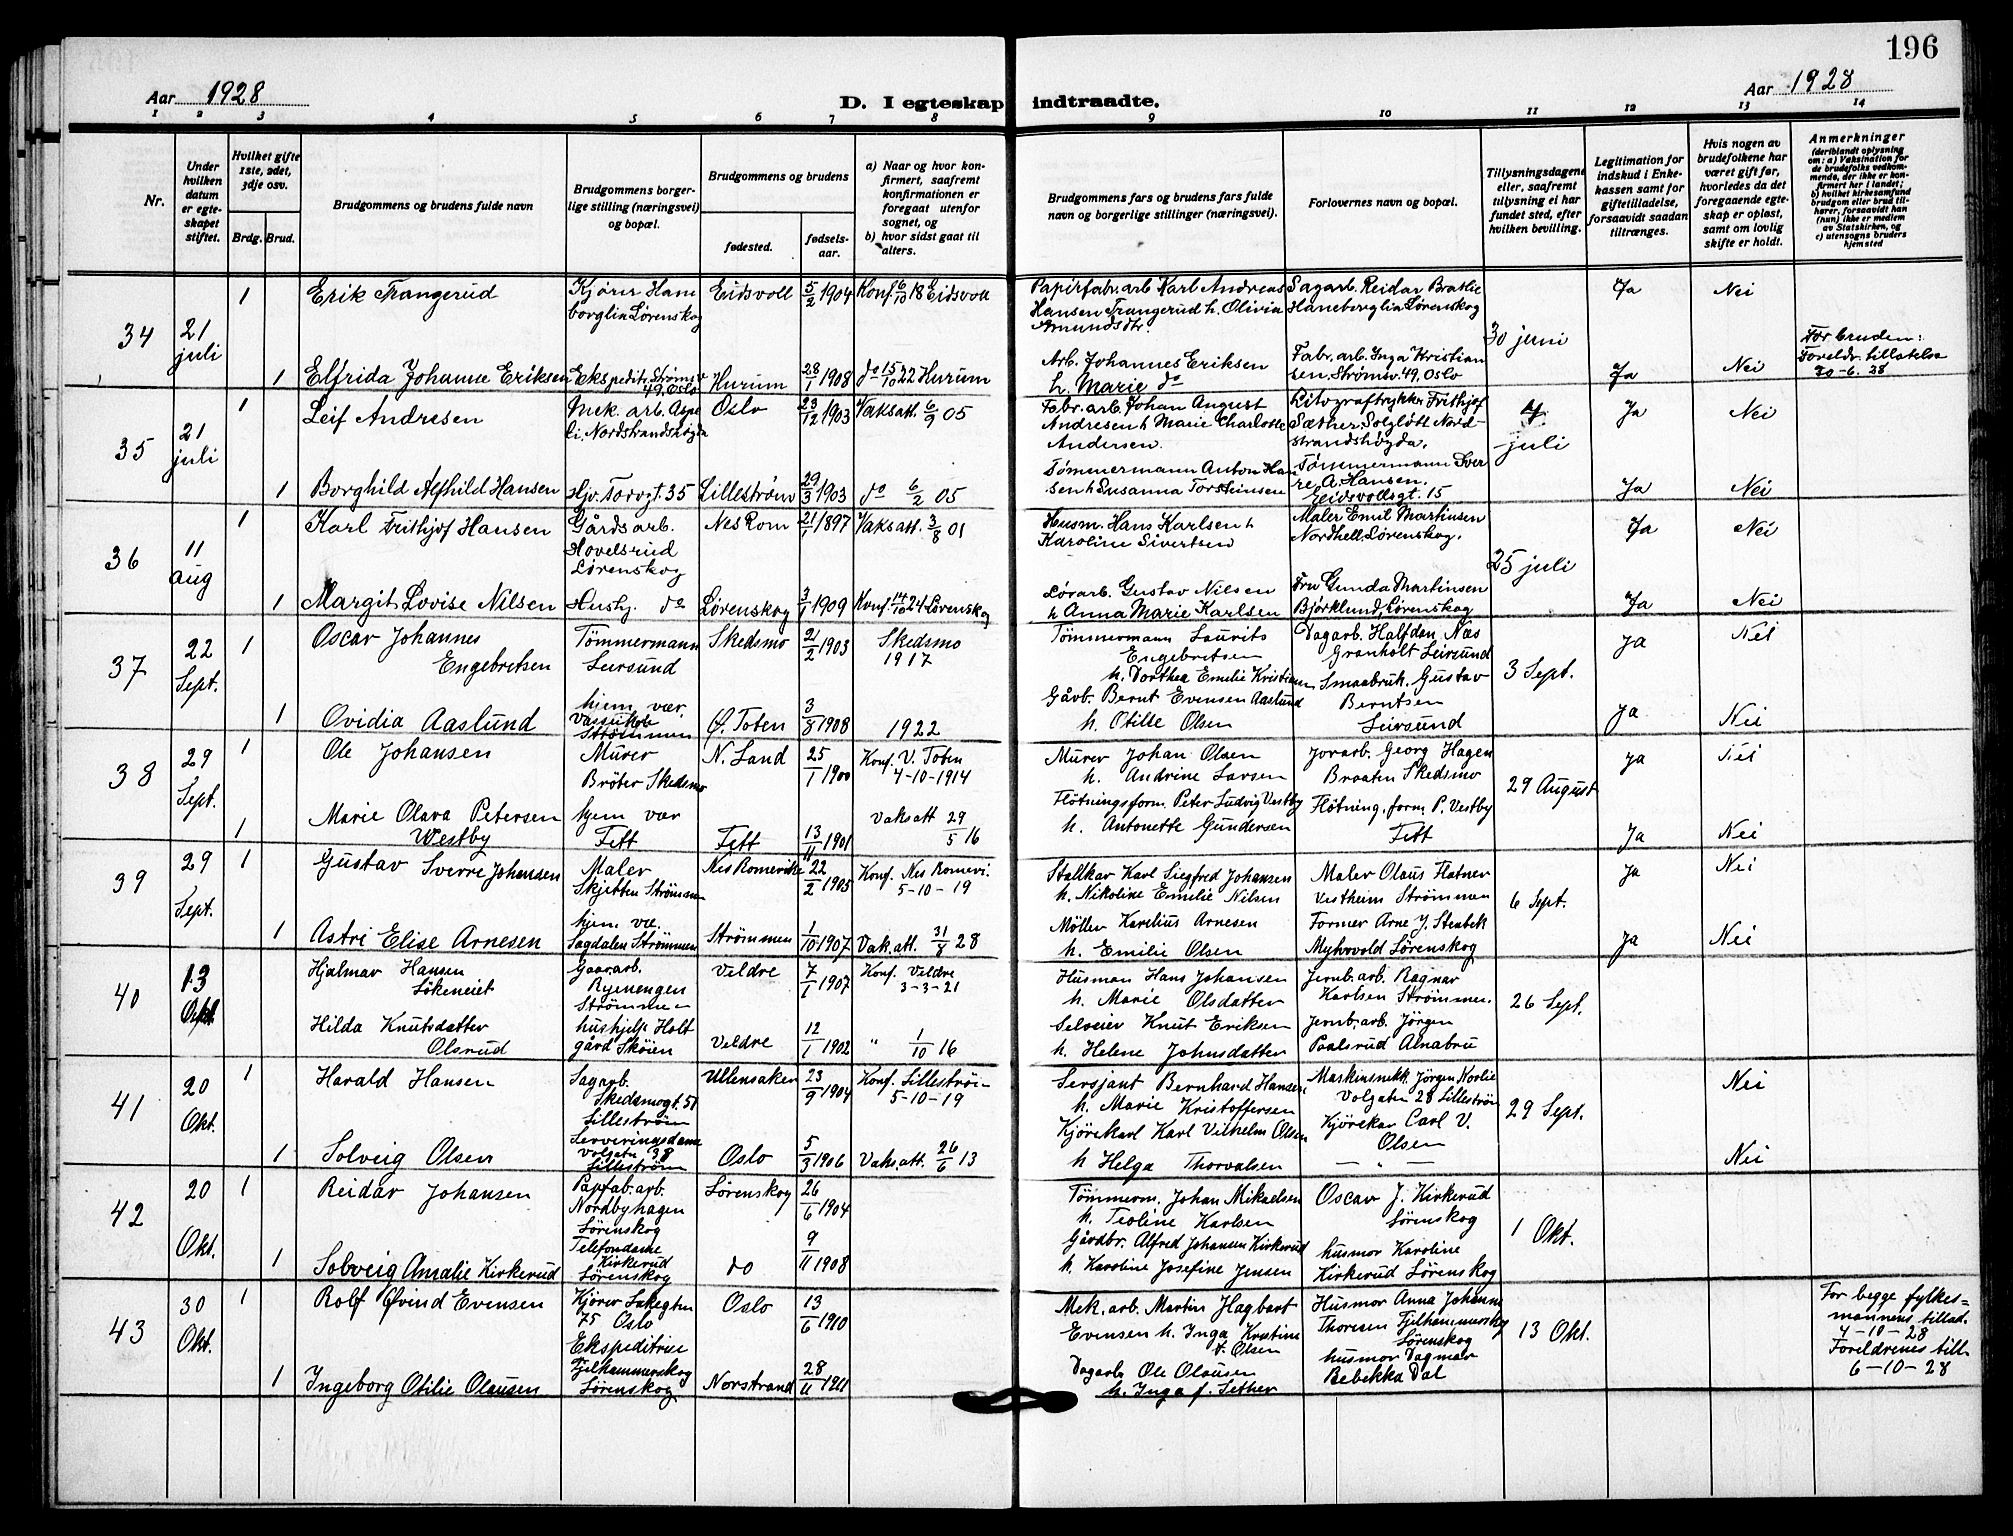 196
Aar 1928
D. I egteskap indtraadte.
Aar 1928
1 2 3 4 5 6 7 8 9 10 11 12 13 14
Nr.
Under hvilken datum er egteskapet stiftet.
Hvilket gifte 1ste, 2det, 3dje osv.
Brdg. Brud.
Brudgommens og brudens fulde navn
Brudgommens borgerlige stilling (næringsvei) og bopæl.
Brudgommens og brudens
fødested.
fødselsaar.
a) Naar og hvor konfirmert, saafremt konfirmationen er foregaat utenfor sognet, og
b) hvor sidst gaat til alters.
Brudgommens fars og brudens fars fulde navn og borgerlige stillinger (næringsvei).
Forlovernes navn og bopæl.
Tillysningsdagene eller, saafremt tillysning ei har fundet sted, efter hvilken bevilling.
Legitimation for indskud i Enkekassen samt for giftetilladelse, forsaavidt saadan tiltrænges.
Hvis nogen av brudefolkene har været gift før, hvorledes da det foregaaende egteskap er opløst, samt om lovlig skifte er holdt.
Anmerkninger
(deriblandt oplysning om: a) Vaksination for de brudefolks vedkommende, der ikke er konfirmert her i landet; b) hvilket kirkesamfund brudgom eller brud tilhører, forsaavidt han (hun) ikke er medlem av Statskirken, og c) utensogns bruders hjemsted
34 21 juli 1 Erik Trangerud Kjører Haneborglia Lørenskog Eidsvoll 5/2 1904 Konf. 6/10 18 Eidsvoll Papirfabr.arb Karl Andreas Hansen Trangerud h. Olivia Amundsdtr. Sagarb. Reidar Bratlie Haneborglia Lørenskog 30 juni Ja Nei
1 Elfrida Johanne Eriksen Ekspeditr. Strømsv. 49, Oslo Hurum 28/1 1908 do 15/10 22 Hurum Arb. Johannes Eriksen h. Marie do Fabr. arb. Inga Kristiansen. Strømsv. 49, Oslo Ja Nei For bruden: Foreldr. tillatelse 30-6. 28
35 21 juli 1 Leif Andresen Mek. arb. Aspeli, Nordstrandshøgda Oslo 23/12 1903 Vaksatt. 6/9 05 Fabr. arb. Johan August Andresen h Marie Charlotte Andersen. Litograftrykker Frithjof Sæther, Solgløtt Nordstrandshøgda. 4 juli Ja Nei
1 Borghild Alfhild Hansen Hjv. Torvgt. 35 Lillestrøm 29/3 1903 do 6/2 05 Tømmermann Anton Hansen h Susanna Torstensen Tømmermann Sverre A. Hansen. Eidsvollsgt. 15 Ja Nei
36 11 aug 1 Karl Frithjof Hansen Gårdsarb. Hovelsrud Lørenskog Nes Rom 21/1 1897 Vaksatt. 3/8 01 Husm. Hans Karlsen h Karoline Sivertsen Maler Emil Martinsen Nordhell, Lørenskog. 25 juli Ja Nei
1 Margit Lovise Nilsen Hushj. do Lørenskog 3/1 1909 Konf. 14/10 24 Lørenskog Lørarb. Gustav Nilsen h Anna Marie Karlsen Fru Gunda Martinsen Bjørklund, Lørenskog Ja Nei
37 22 Sept. 1 Oscar Johannes Engebretsen Tømmermann Leirsund Skedsmo 21/2 1903 Skedsmo 1917 Tømmermann Laurits Engebretsen h. Dorthea Emelie Kristiansen Dagarb. Halfdan Næs Granholt Leirsund 3 Sept. Ja Nei
1 Ovidia Aaslund hjem. vær. Strømmen Ø. Toten 3/8 1908 1922 Gårdb. Bernt Evensen Aaslund h. Otilie Olsen Smaabruk. Gustav Berntsen Leirsund Ja Nei
38 29 Sept. 1 Ole Johansen Murer Brøter Skedsmo N. Land 25/1 1900 Konf. V. Toten 4-10-1914 Murer Johan Olsen h. Andrine Larsen Jorarb. Georg Hagen Braaten Skedsmo 29 August Ja Nei
1 Marie Olava Petersen Westby hjem vær Fett Fett 13/11 1901 Vaksatt 29/5 16 Fløtningsform. Peter Ludvig Vestby h. Antonette Gundersen Fløtning. form. P. Vestby Fett Ja Nei
39 29 Sept. 1 Gustav Sverre Johansen Maler Skjetten Strømmen Nes Romerike 22/2 1905 Konf. Nes Romeri. 5-10-19 Stallkar Karl Siegfred Johansen h. Nikoline Emelie Nilsen Maler Olaus Flatner Vestheim Strømmen 6 Sept. Ja Nei
1 Astri Elise Arnesen hjem. væ. Sagdalen Strømmen Strømmen 1/10 1907 Vak.att. 31/8 28 Møller Karelius Arnesen h. Emilie Olsen Former Arne J. Stenbek Myhrvold Lørenskog Ja Nei
40 13 Okt. Hjalmar Hansen Løkeneiet Gaararb. Ryenengen Strømmen Veldre 7/1 1907 Konf. Veldre 3-3-21 Husman Hans Johansen h. Marie Olsdatter Jernb. arb. Ragnar Karlsen Strømmen. 26 Sept.
Hilda Knutsdatter Olsrud hushjelp Holt gård Skøien Veldre 12/1 1902 " 1/10 16 Selveier Knut Eriksen h. Helene Johnsdatter Jernb. arb. Jörgen Paalsrud Alnabru
41 20 Okt. 1 Harald Hansen Sagarb. Skedsmogt. 51 Lillestrøm Ullensaker 23/9 1904 Konf. Lillestrø- 5-10-19 Sersjant Bernhard Hansen h. Marie Kristoffersen Maskinsnekk. Jörgen Horlie Volgaten 28 Lillestrøm 29 Sept. Nei
1 Solveig Olsen Serveringsdame Volgaten 38 Lillestrøm Oslo 5/3 1906 Vaksatt. 26/6 13 Kjörekarl Karl Vilhelm Olsen h Helga Thorvalsen Kjörekar Carl V. Olsen — " — Nei
42 20 Okt. 1 Reidar Johansen Papfab. arb. Nordbyhagen Lørenskog Lørenskog 26/6 1904 Tömmerm. Johan Mikaelsen h. Teoline Karlsen Oscar J. Kirkerud Lørenskog 1 Okt.
1 Solveig Amalie Kirkerud Telefondame Kirkerud Lørenskog do 9/11 1908 Gårdbr. Alfred Johansen Kirkerud h. Karoline Josefine Jensen husmor Karoline Kirkerud Lørenskog
43 30 Okt. 1 Rolf Øivind Evensen Kjører Lakegtn 75 Oslo Oslo 13/6 1910 Mek. arb. Martin Hagbart Evensen h. Inga Kristine f. Olsen Husmor Anna Johanne Thoresen Fjelhammerskog Lørenskog 13 Okt. For begge fylkesmannens tillad. 4-10-28 Foreldrenes till. 6-10-28
1 Ingeborg Otilie Olausen Ekspeditrise Fjelhammerskog Lørenskog Norstrand 28/11 1911 Dagarb. Ole Olausen h. Inga f. Sether husmor Dagmar Bebekka Dal